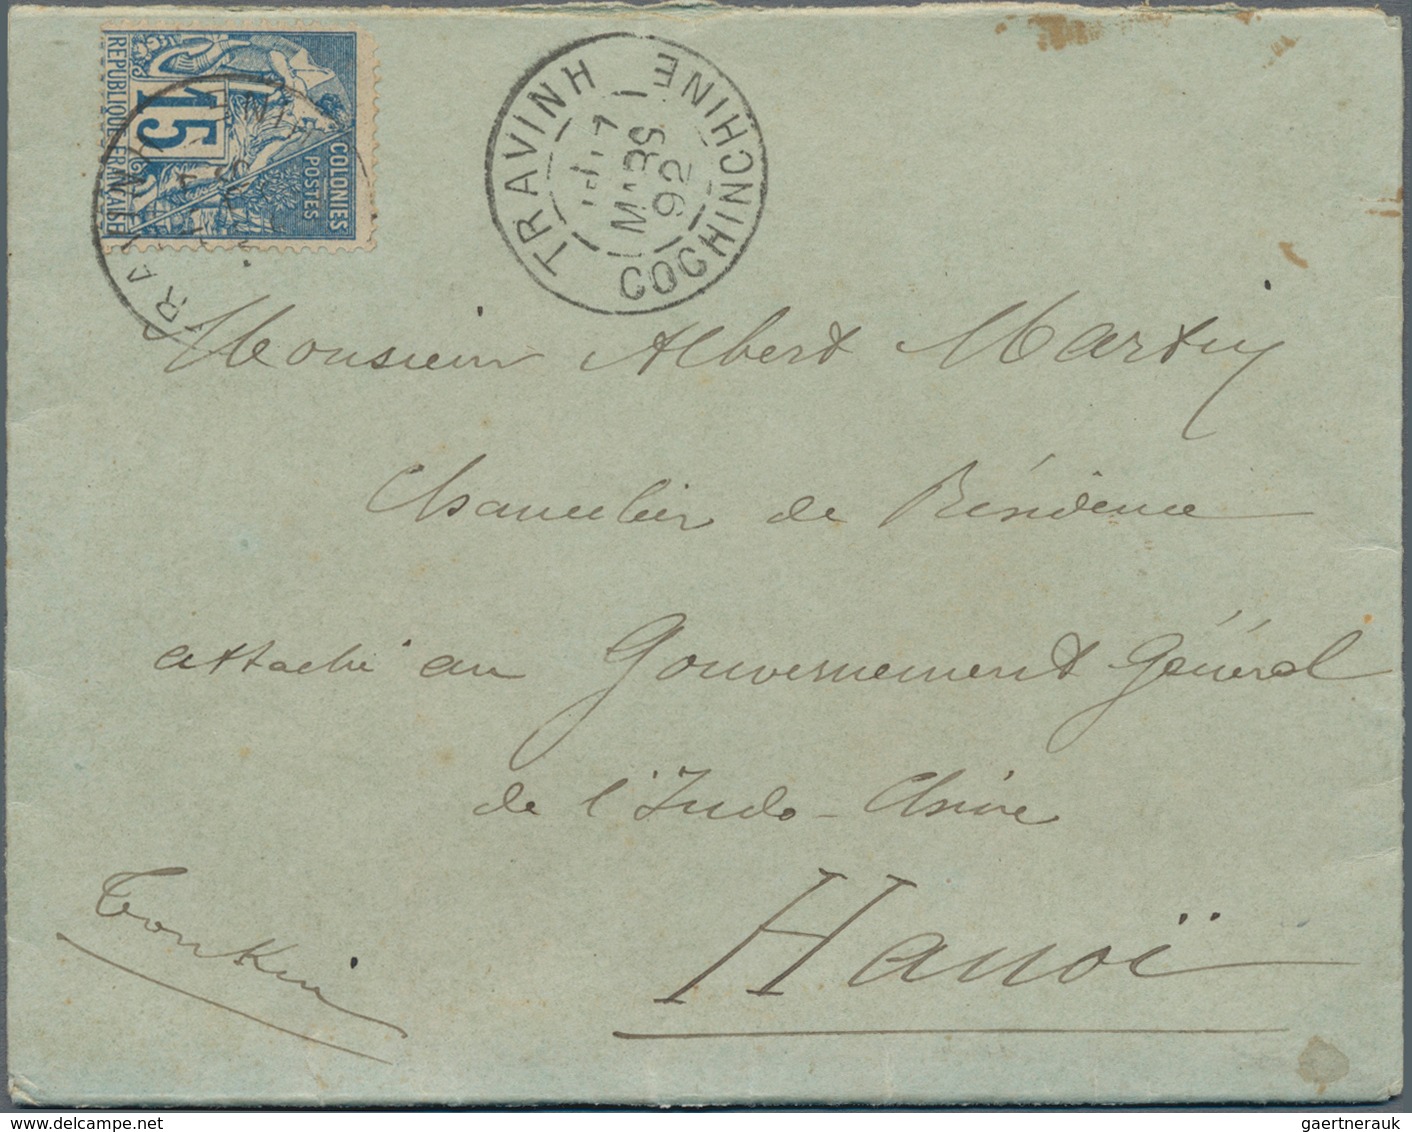 RÉPUBLIQUE FRANÇAISE
15
COLONIES
POSTES
TRAVINH
MARS
92
COCHINCHINE
Monsieur Albert Marty
Chancelier de Résidence
attaché au Gouvernement Général
de l'Indo-Chine
Hanoï
Tonkin
gaertnerauk